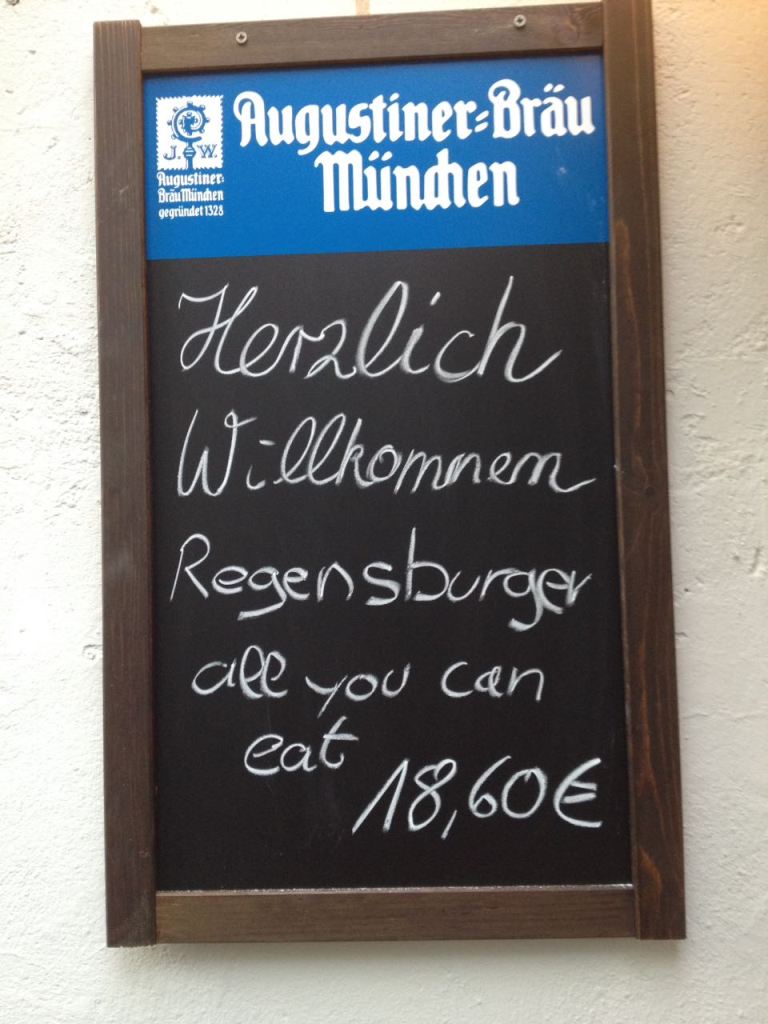 Augustiner-Bräu
München
J. W.
Augustiner-
Bräu München
gegründet 1328
Herzlich
Willkommen
Regensburger
all you can
eat
18,60€